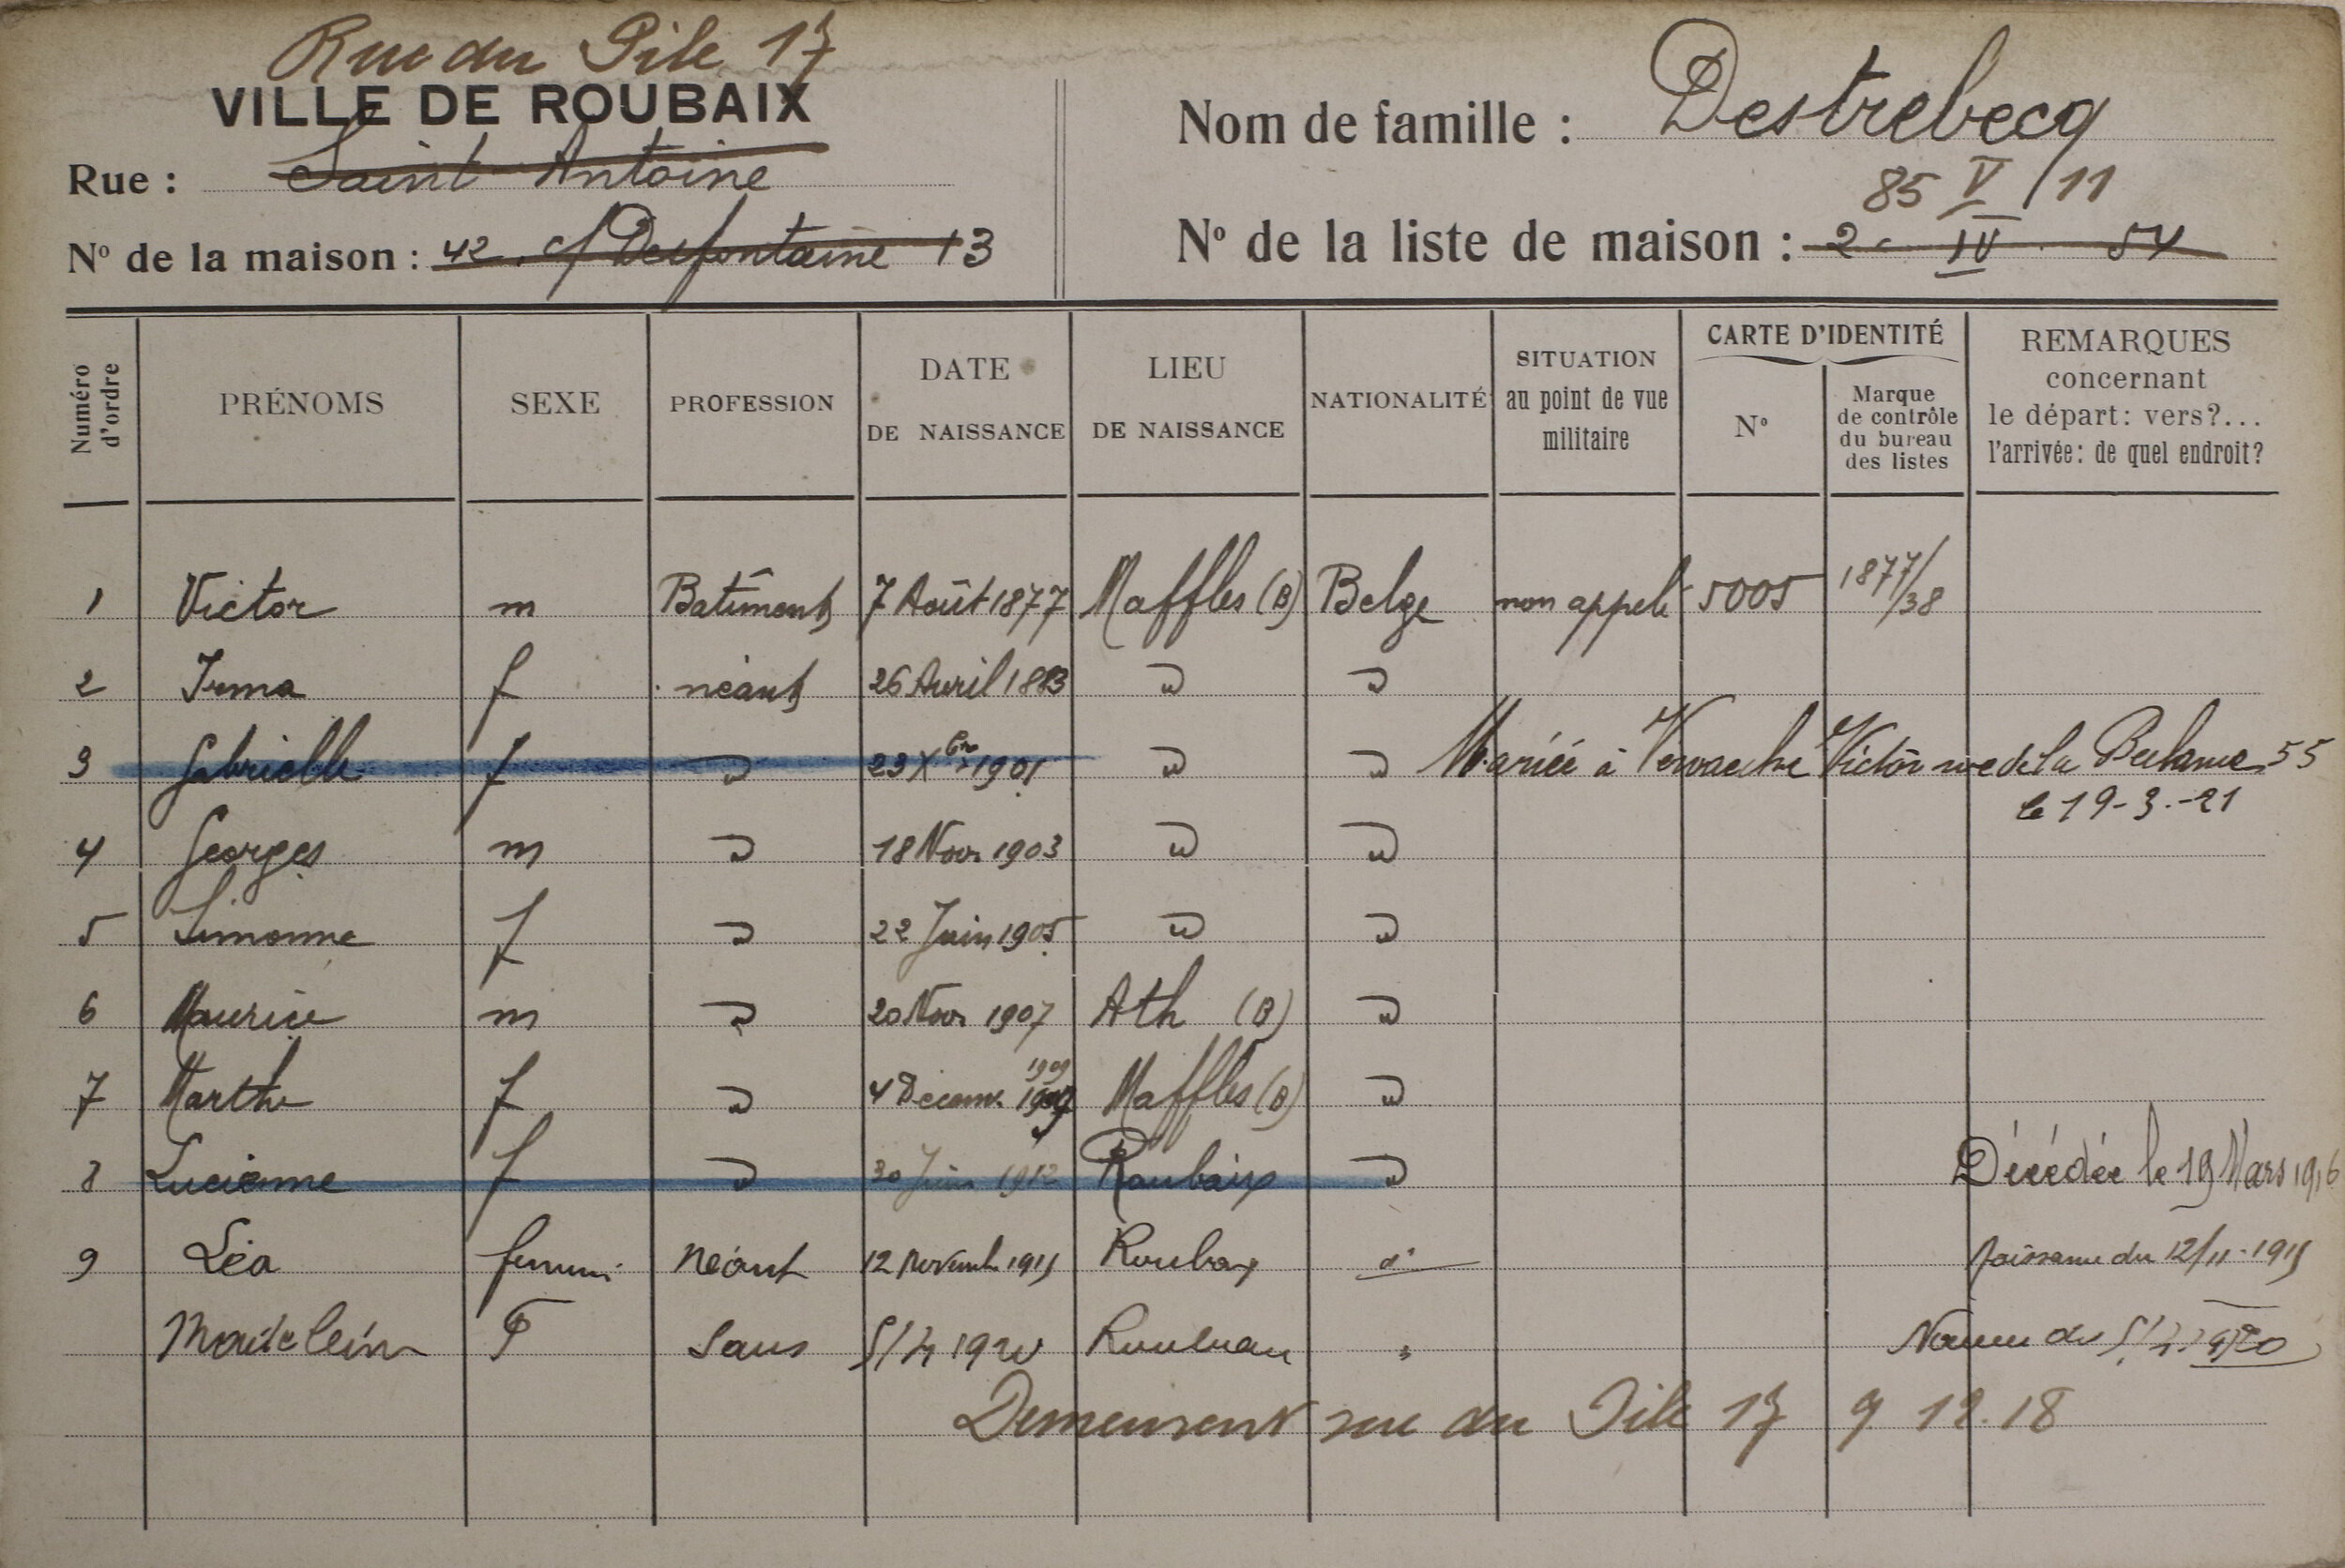 Rue du Pile 17
VILLE DE ROUBAIX
Rue : Saint Antoine
Nº de la maison : 42. c/ Desfontaine 13
Nom de famille : Destrebecq
85 V/11
Nº de la liste de maison : 2 IV 54
Numéro d'ordre
PRÉNOMS
SEXE
PROFESSION
DATE DE NAISSANCE
LIEU DE NAISSANCE
NATIONALITÉ
SITUATION au point de vue militaire
CARTE D'IDENTITÉ
Nº
Marque de contrôle du bureau des listes
REMARQUES concernant le départ : vers ?... l'arrivée : de quel endroit ?
1 Victor m Batiment 7 Août 1877 Maffles (B) Belge non appelé 5005 1877/38
2 Irma f néant 26 Avril 1883 " "
3 Gabrielle f " 23 Xbre 1901 " " Mariée à Victor rue de la 55
le 19-3-21
4 Georges m " 18 Nov 1903 " "
5 Simonne f " 22 Juin 1905 " "
6 Maurice m " 20 Nov 1907 Ath (B) "
7 Marthe f " 4 Décem. 1909 Maffles (B) "
8 Lucienne f " 30 Juin 1912 Roubaix " Décédée le 19 Mars 1916
9 Léa femini Néant 12 Novemb Roubaix dº Naissance du 12/11
Madeleine F Sans 1920 "
Demeurant rue du Pile 17 9 12.18